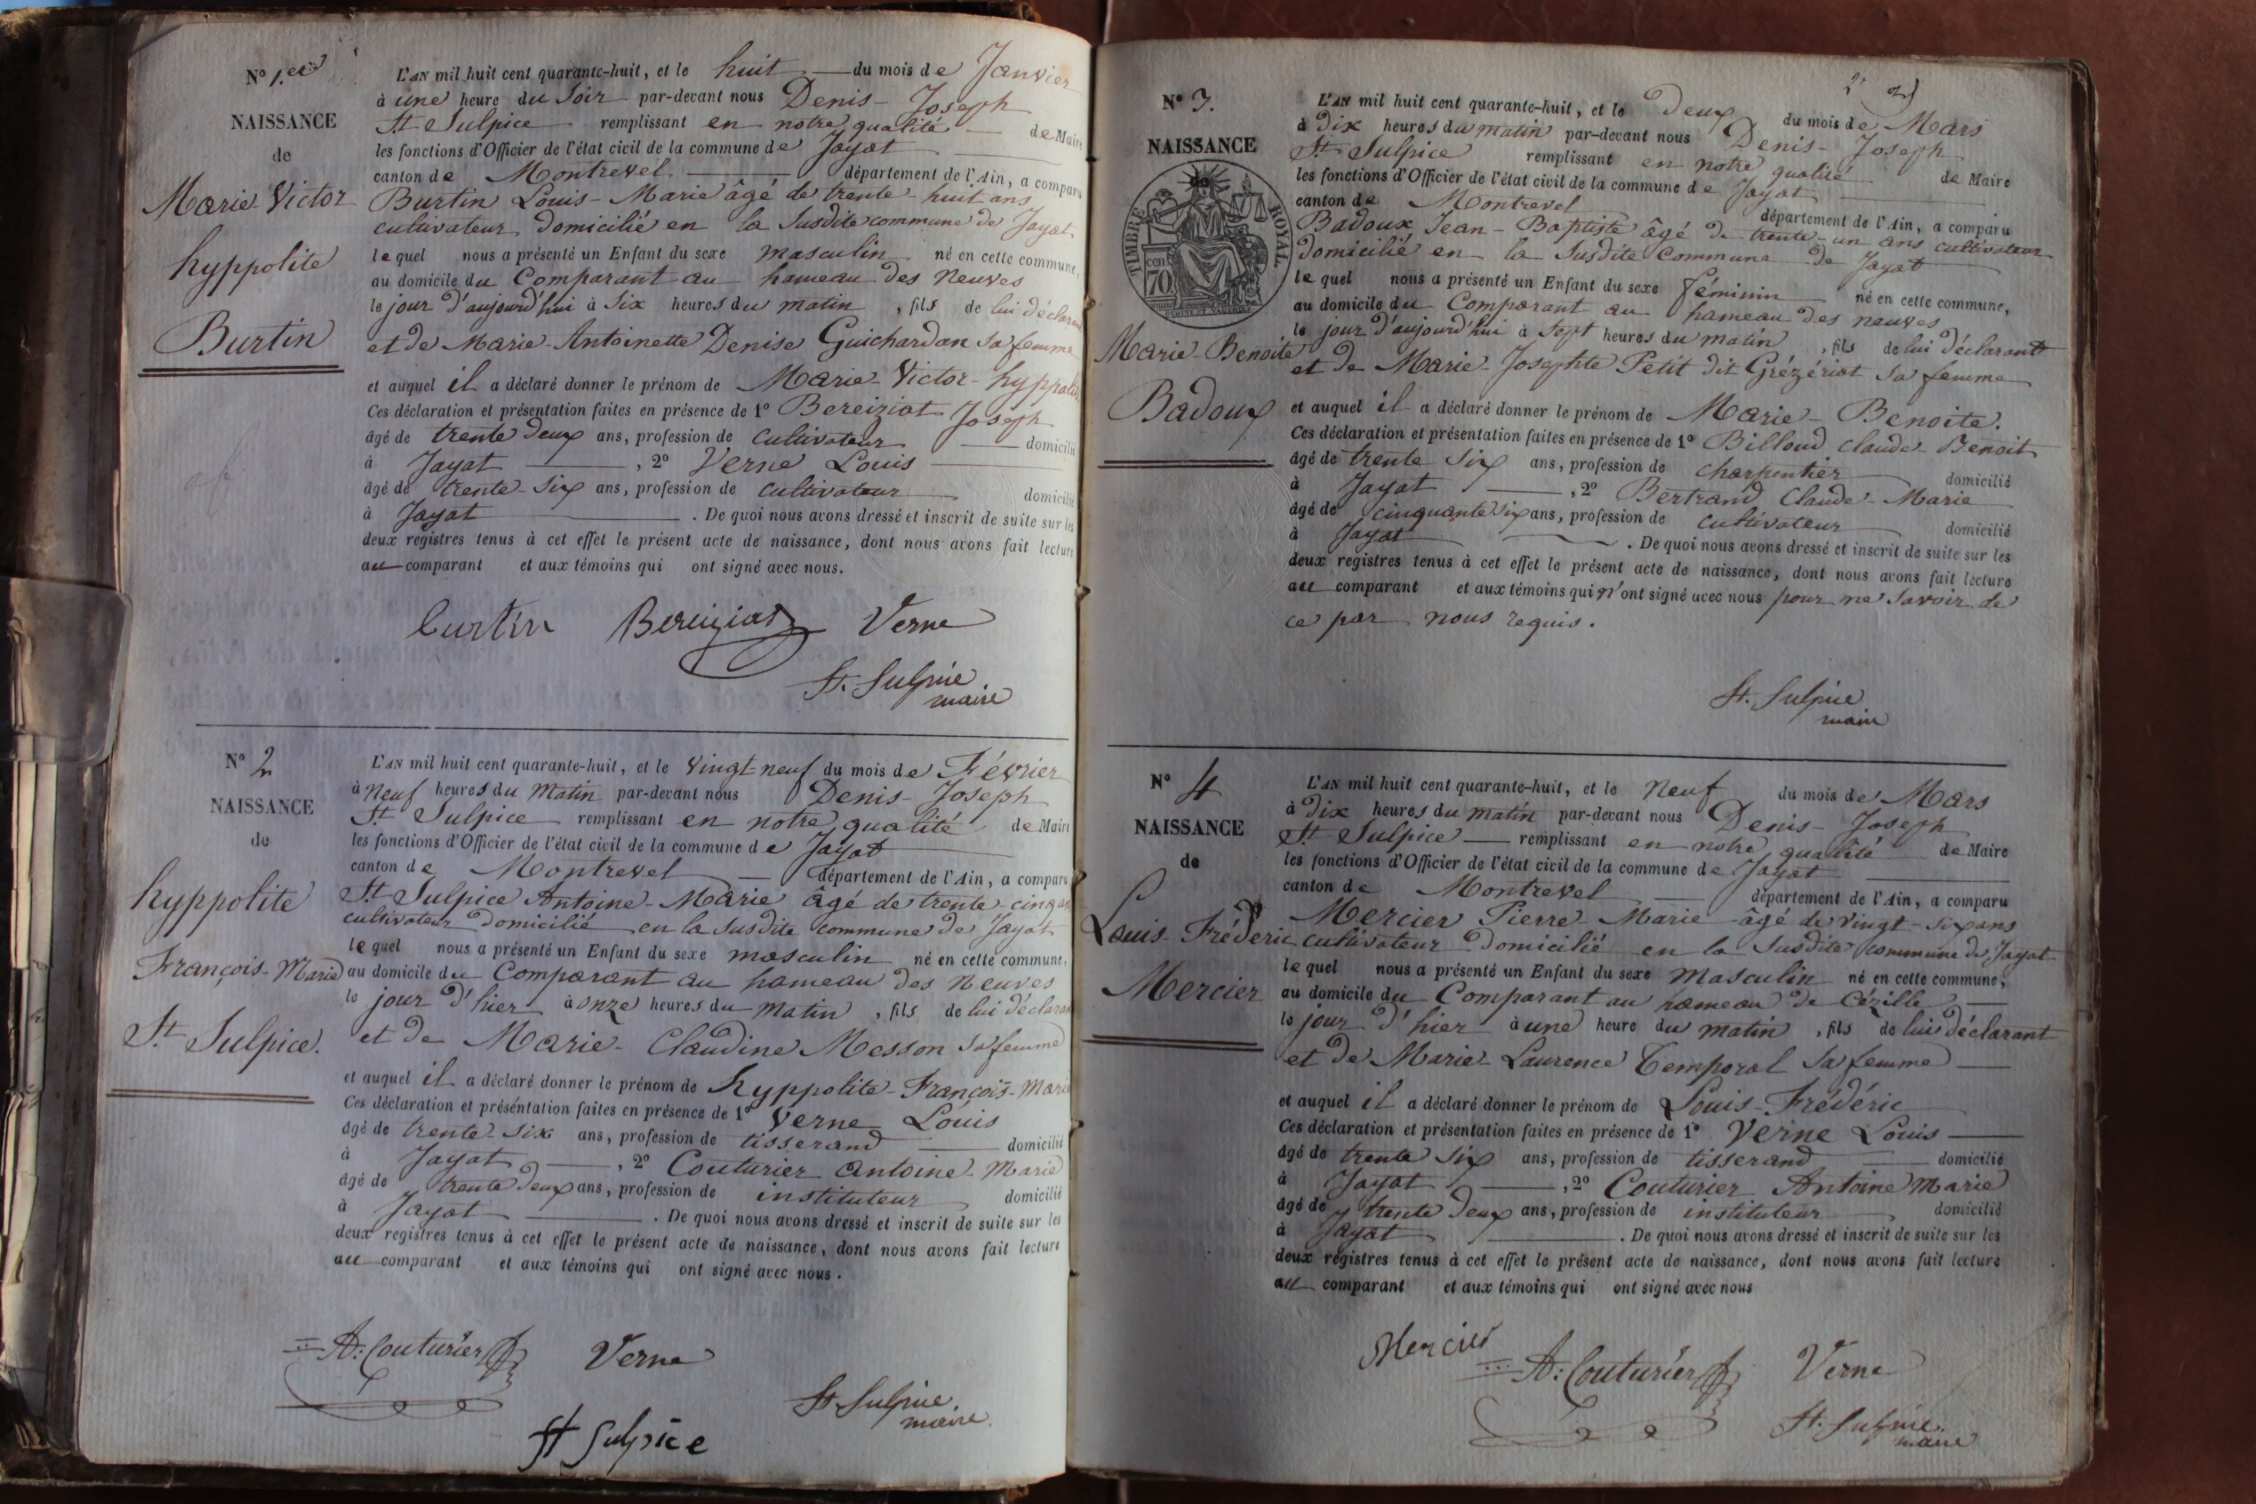 N° 1.er
NAISSANCE
de
Marie-Victor
hyppolite
Burtin
L'AN mil huit cent quarante-huit, et le huit du mois de Janvier
à une heure du Soir par-devant nous Denis-Joseph
St Sulpice remplissant en notre qualité de Maire
les fonctions d'Officier de l'état civil de la commune de Jayat
canton de Montrevel. département de l'Ain, a comparu
Burtin Louis-Marie âgé de trente-huit ans
cultivateur domicilié en la Susdite commune de Jayat
lequel nous a présenté un Enfant du sexe masculin né en cette commune,
au domicile du Comparant au hameau des Neuves
le jour d'aujourd'hui à Six heures du matin, fils de lui déclarant
et de Marie-Antoinette Denise Guichardan sa femme
et auquel il a déclaré donner le prénom de Marie-Victor-hyppolite
Ces déclaration et présentation faites en présence de 1° Bereiziat Joseph
âgé de trente deux ans, profession de cultivateur domicilié
à Jayat, 2° Verne Louis
âgé de trente-six ans, profession de cultivateur domicilié
à Jayat. De quoi nous avons dressé et inscrit de suite sur les
deux registres tenus à cet effet le présent acte de naissance, dont nous avons fait lecture
au comparant et aux témoins qui ont signé avec nous.
Burtin Bereiziat Verne
St. Sulpice
maire
N° 2
NAISSANCE
de
hyppolite
François-Marie
St Sulpice.
L'AN mil huit cent quarante-huit, et le vingt neuf du mois de Février
à neuf heures du matin par-devant nous Denis-Joseph
St Sulpice remplissant en notre qualité de Maire
les fonctions d'Officier de l'état civil de la commune de Jayat
canton de Montrevel département de l'Ain, a comparu
St Sulpice Antoine-Marie âgé de trente-cinq ans
cultivateur domicilié en la Susdite commune de Jayat
lequel nous a présenté un Enfant du sexe masculin né en cette commune,
au domicile du Comparant au hameau des Neuves
le jour d'hier à onze heures du matin, fils de lui déclarant
et de Marie-Claudine Messon sa femme
et auquel il a déclaré donner le prénom de hyppolite-François-Marie
Ces déclaration et présentation faites en présence de 1° Verne Louis
âgé de trente-six ans, profession de tisserand domicilié
à Jayat, 2° Couturier Antoine-Marie
âgé de trente deux ans, profession de instituteur domicilié
à Jayat. De quoi nous avons dressé et inscrit de suite sur les
deux registres tenus à cet effet le présent acte de naissance, dont nous avons fait lecture
au comparant et aux témoins qui ont signé avec nous.
A: Couturier Verne
St. Sulpice
maire
St Sulpice
2
N° 3.
NAISSANCE
de
TIMBRE ROYAL
70
Marie-Benoite
Badoux
L'AN mil huit cent quarante-huit, et le deux du mois de Mars
à dix heures du matin par-devant nous Denis-Joseph
St Sulpice remplissant en notre qualité de Maire
les fonctions d'Officier de l'état civil de la commune de Jayat
canton de Montrevel département de l'Ain, a comparu
Badoux Jean-Baptiste âgé de trente-un ans cultivateur
domicilié en la Susdite Commune de Jayat
lequel nous a présenté un Enfant du sexe féminin né en cette commune,
au domicile du Comparant au hameau des neuves
le jour d'aujourd'hui à Sept heures du matin, fils de lui déclarant
et de Marie-Josephte Petit dit Grézériat sa femme
et auquel il a déclaré donner le prénom de Marie-Benoite.
Ces déclaration et présentation faites en présence de 1° Billoud Claude-Benoit
âgé de trente six ans, profession de charpentier domicilié
à Jayat, 2° Bertrand Claude-Marie
âgé de cinquante six ans, profession de cultivateur domicilié
à Jayat. De quoi nous avons dressé et inscrit de suite sur les
deux registres tenus à cet effet le présent acte de naissance, dont nous avons fait lecture
au comparant et aux témoins qui n'ont signé avec nous pour ne savoir de
ce par nous requis.
St. Sulpice
maire
N° 4
NAISSANCE
de
Louis-Fréderic
Mercier
L'AN mil huit cent quarante-huit, et le Neuf du mois de Mars
à dix heures du matin par-devant nous Denis-Joseph
St Sulpice remplissant en notre qualité de Maire
les fonctions d'Officier de l'état civil de la commune de Jayat
canton de Montrevel département de l'Ain, a comparu
Mercier Pierre Marie âgé de vingt-six ans
cultivateur domicilié en la Susdite commune de Jayat
lequel nous a présenté un Enfant du sexe Masculin né en cette commune,
au domicile du Comparant au hameau de Cézille
le jour d'hier à une heure du matin, fils de lui déclarant
et de Marie-Laurence Temporal sa femme
et auquel il a déclaré donner le prénom de Louis-Fréderic
Ces déclaration et présentation faites en présence de 1° Verne Louis
âgé de trente six ans, profession de tisserand domicilié
à Jayat, 2° Couturier Antoine Marie
âgé de trente deux ans, profession de instituteur domicilié
à Jayat. De quoi nous avons dressé et inscrit de suite sur les
deux registres tenus à cet effet le présent acte de naissance, dont nous avons fait lecture
au comparant et aux témoins qui ont signé avec nous
Mercier A: Couturier Verne
St. Sulpice.
maire